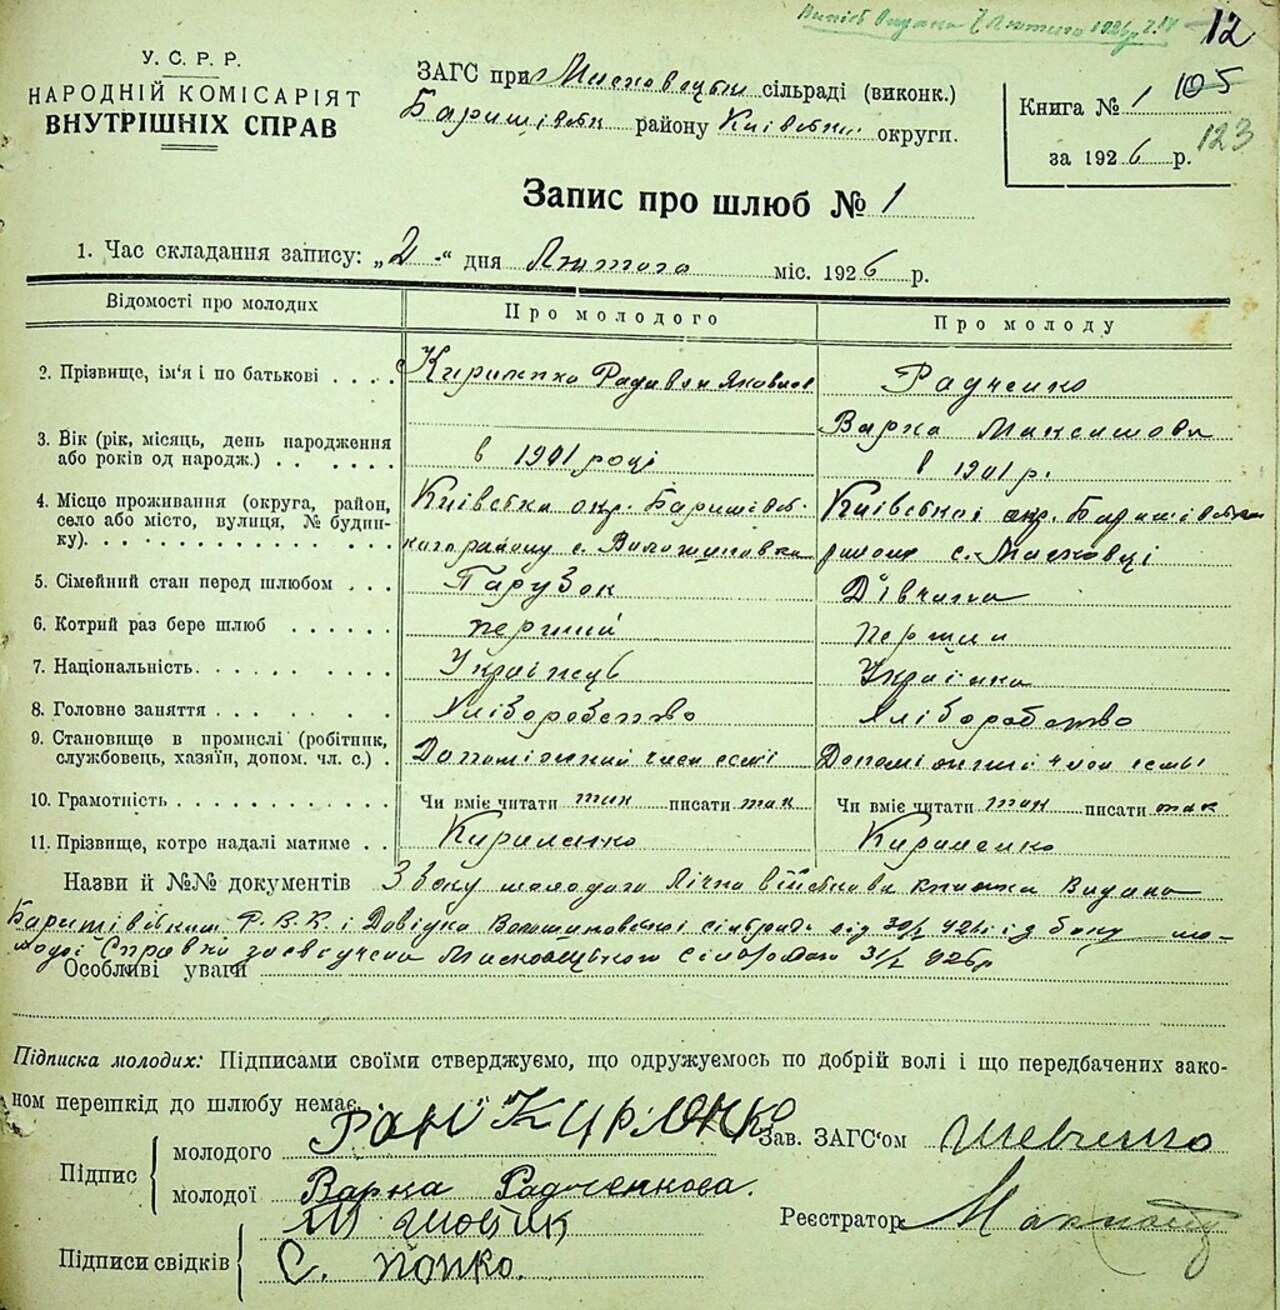 12
У. С. Р. Р.
НАРОДНІЙ КОМІСАРІЯТ
ВНУТРІШНІХ СПРАВ
ЗАГС при Мисковецькій сільраді (виконк.)
Баришівськ району Київськ округи.
Книга № 1 105
за 1926 р. 123
Запис про шлюб № 1
1. Час складання запису: „2" дня Лютого міс. 1926 р.
Відомості про молодих Про молодого Про молоду
2. Прізвище, ім'я і по батькові . . . . Кириленко Радивон Яковлев Радченко
Варка Максимовн
3. Вік (рік, місяць, день народження
або років од народж.) . . . . . . в 1901 році в 1901 р.
4. Місце проживання (округа, район,
село або місто, вулиця, № будин-
ку). Київська окр. Баришівсь- Київської окр. Баришівськ
кого району с. Волошиновка району с. Мисковці
5. Сімейний стан перед шлюбом . . . Парубок Дівчина
6. Котрий раз бере шлюб . . . . . . перший перший
7. Національність. . . . . . . . Українець Українка
8. Головне заняття . . . . . . . Хліборобство Хліборобство
9. Становище в промислі (робітник,
службовець, хазяїн, допом. чл. с.) . Допоміжний член семї Допоміжний член семьї
10. Грамотність . . . . . . . . . . Чи вміє читати так писати так Чи вміє читати так писати так
11. Прізвище, котре надалі матиме . . Кириленко Кириленко
Назви й №№ документів З боку молодого Лічна військова книжка Видана
Баришівським Р. В. К. і Довідка Волошиновської сільради від 30/I 926 і з боку мо-
лодої Справка засвідчена Мисковецькою сільрадою 31/I 926р
Особливі уваги
Підписка молодих: Підписами своїми стверджуємо, що одружуємось по добрій волі і що передбачених зако-
ном перешкід до шлюбу немає.
Підпис молодого Кирленко Зав. ЗАГС'ом Шевченко
молодої Варка Радченкова.
Реєстратор
Підписи свідків
С. Попко.